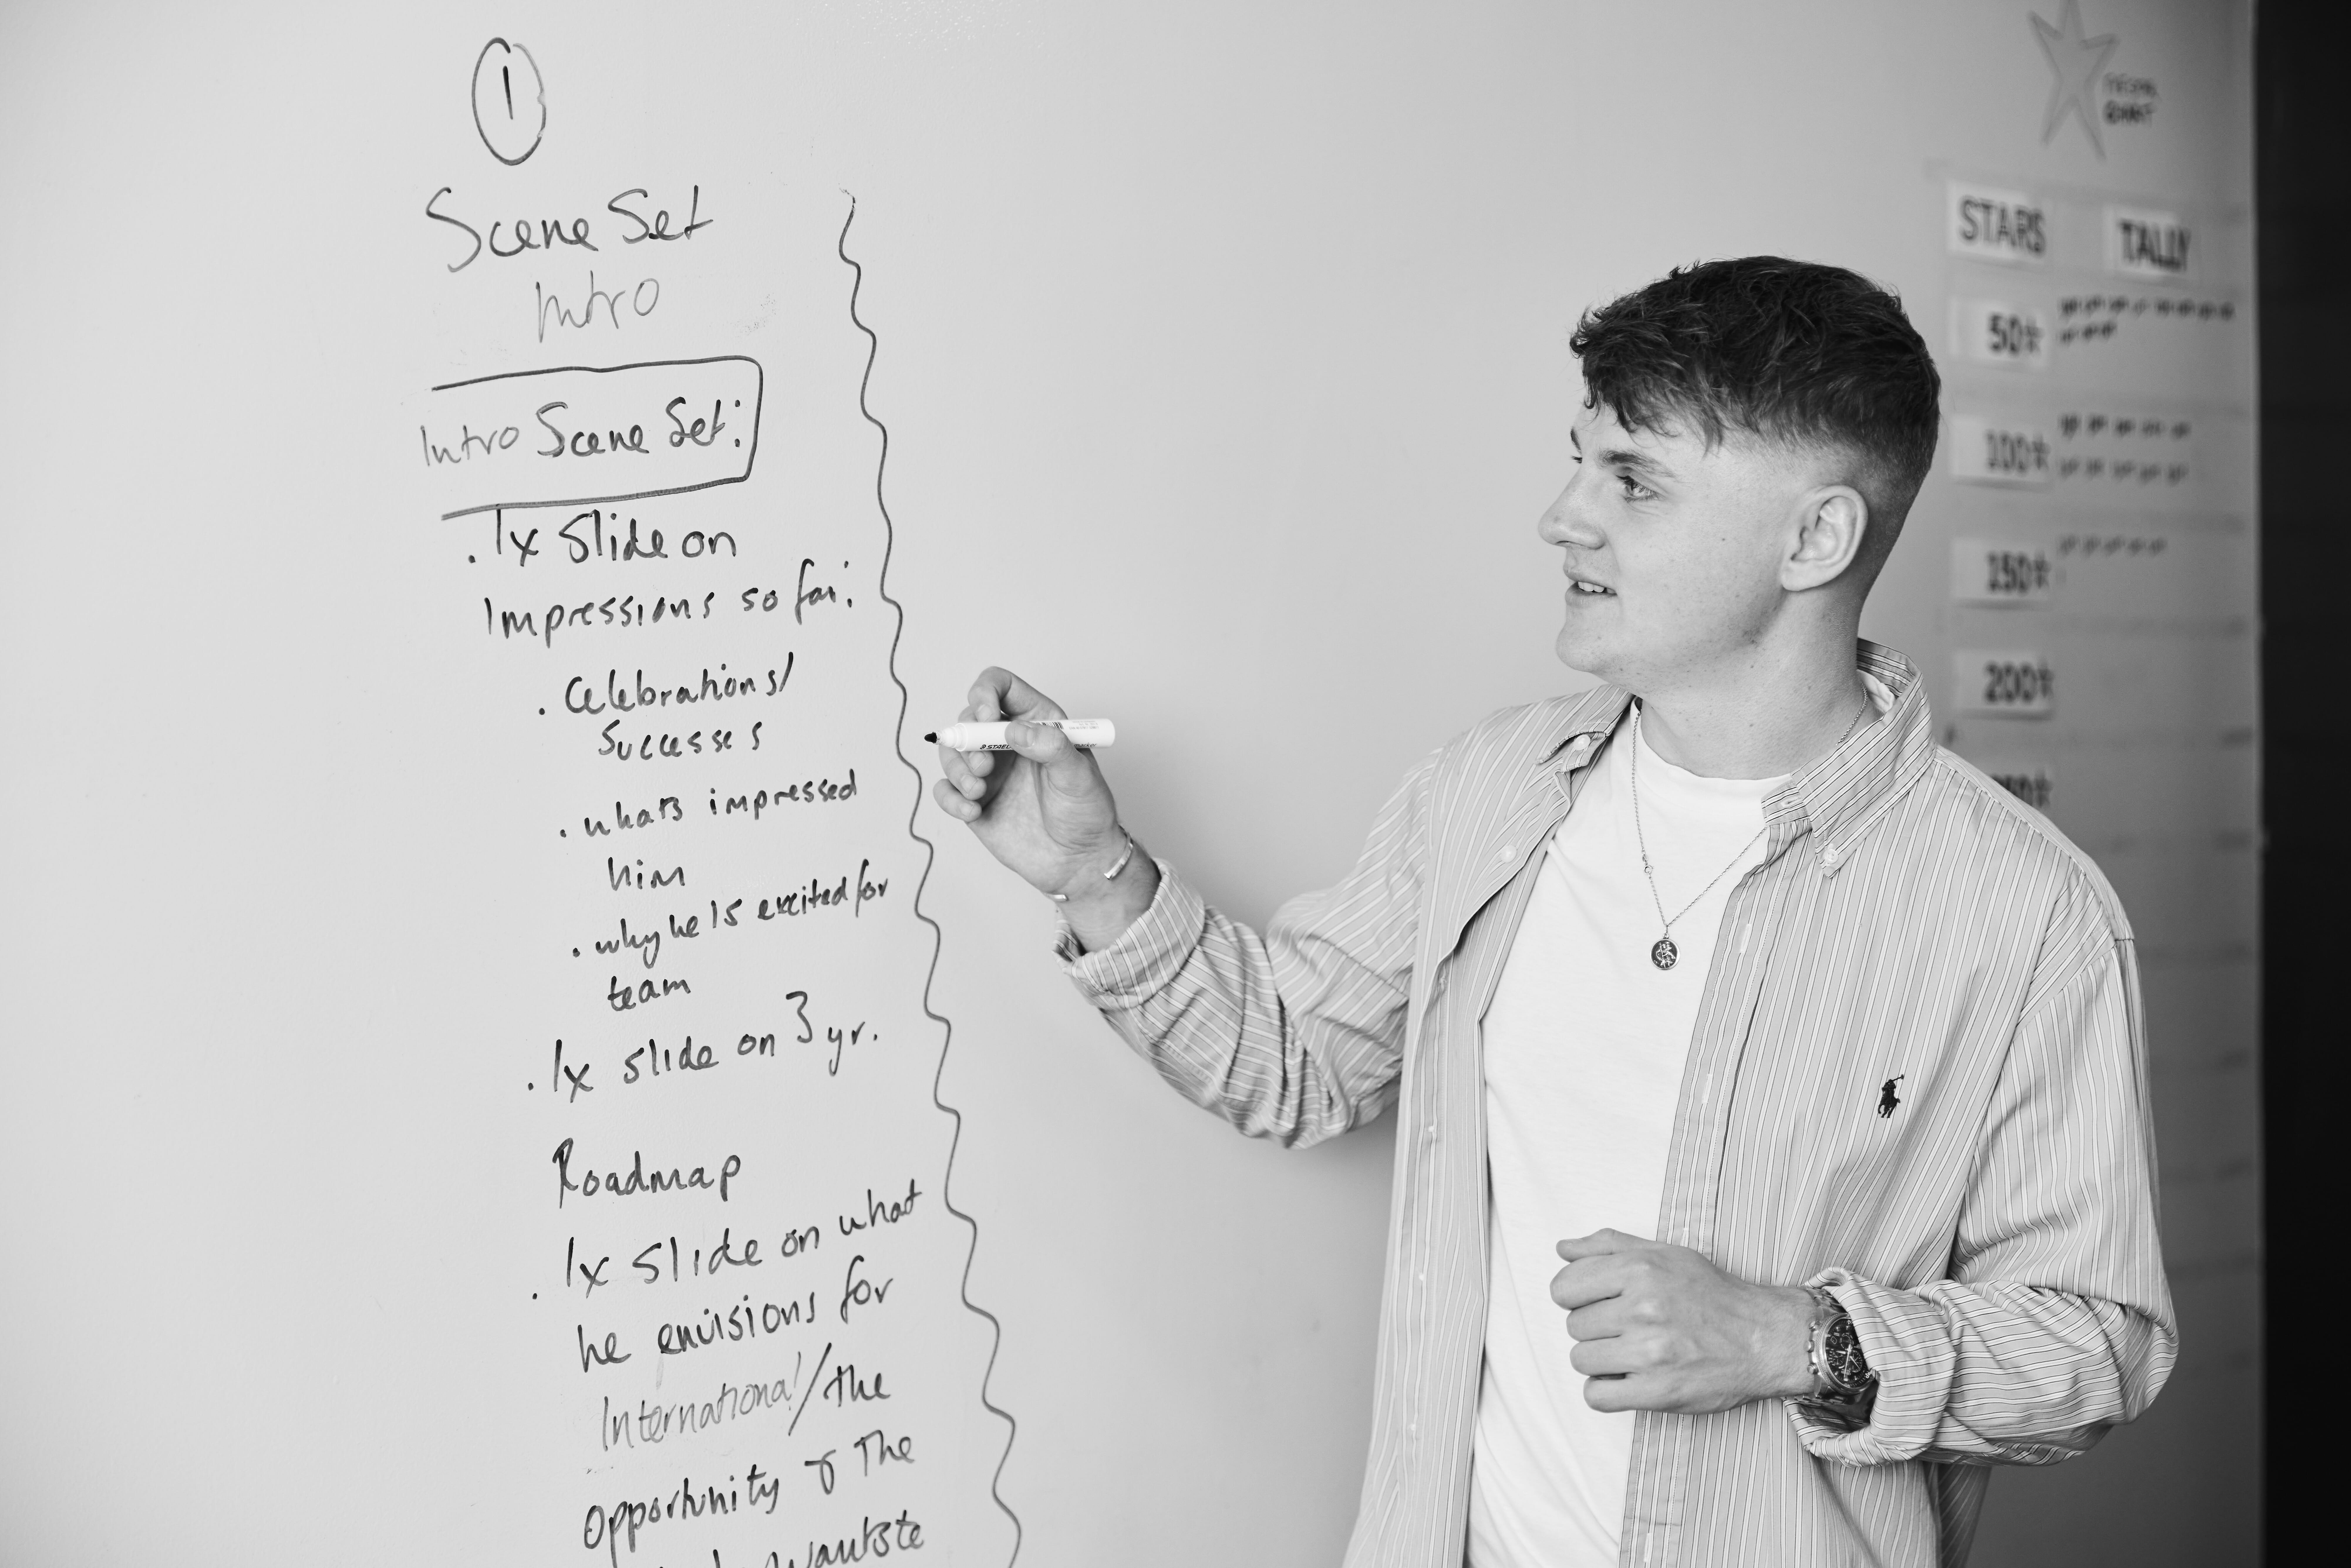 1
Scene Set
Intro
Intro Scene Set:
. 1x Slide on
Impressions so far:
. Celebrations/
Successes
. whats impressed
him
. why he is excited for
team
. 1x slide on 3 yr.
Roadmap
. 1x slide on what
he envisions for
International/the
opportunity of the
wants to
STARS TALLY
50★
100★
150★
200★